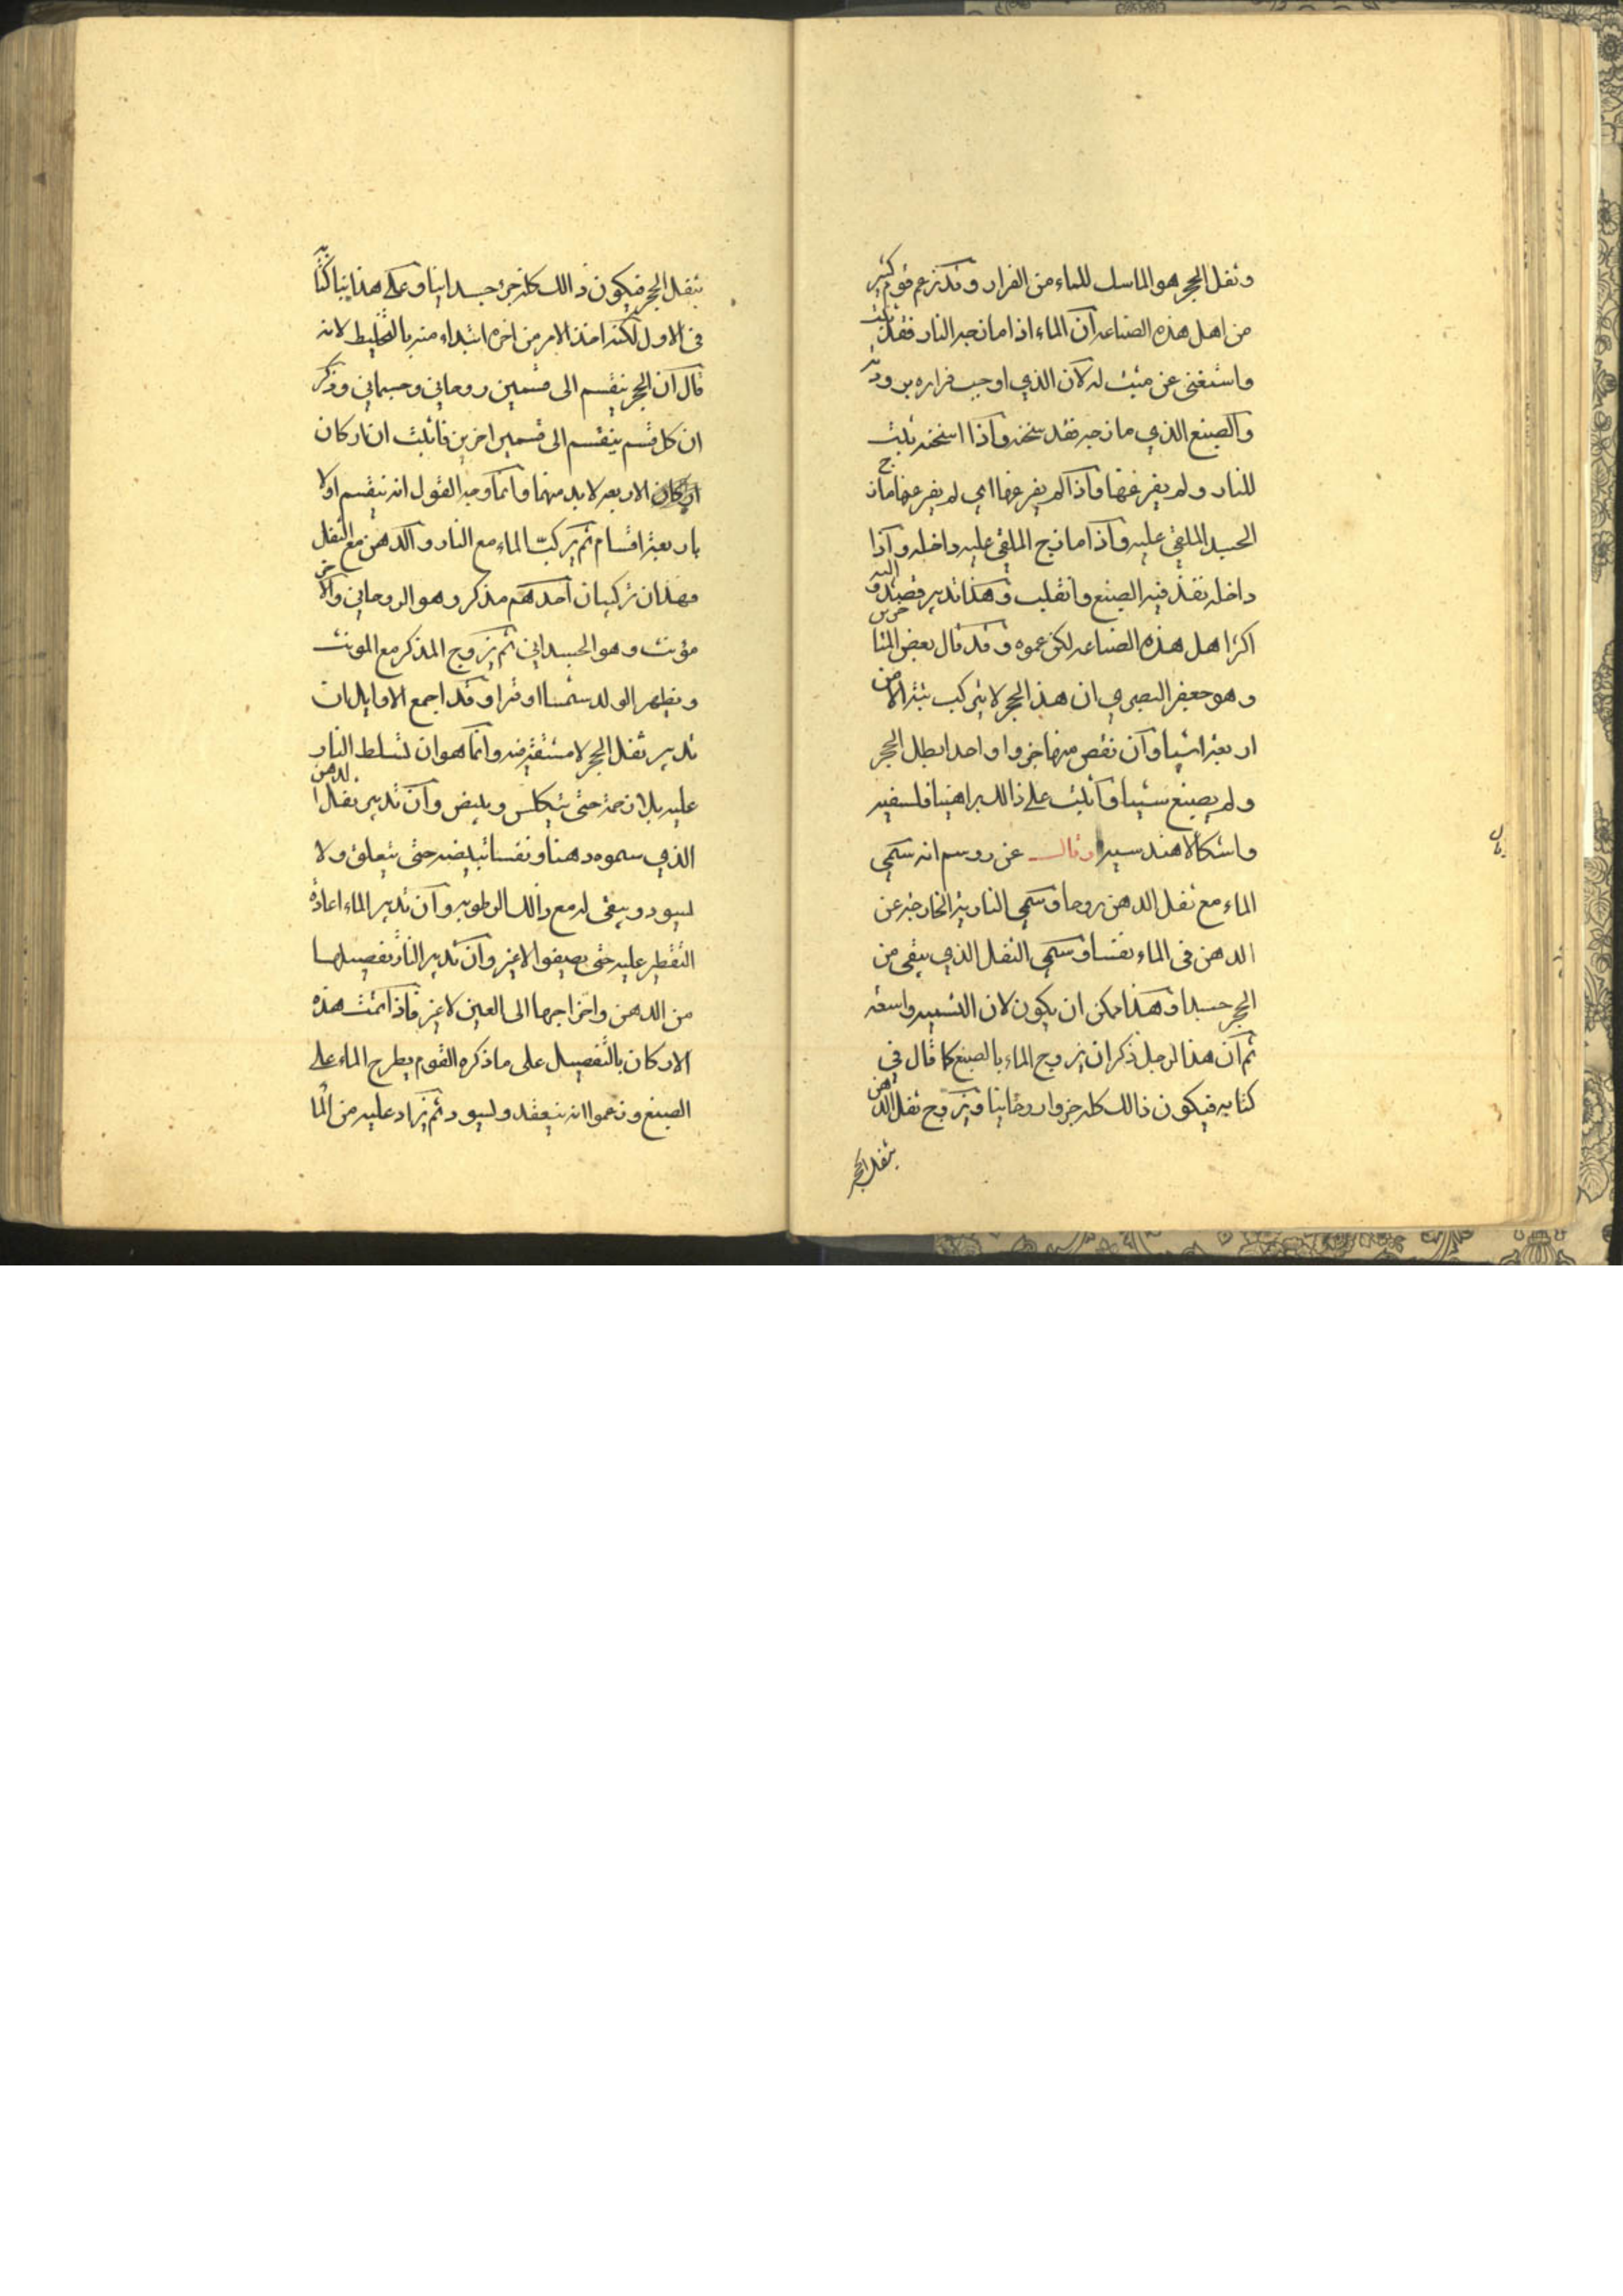 وثفل الحجر هو الماسك للماء من الفرار وقد زعم قوم كثير
من اهل هذه الصناعه ان الماء اذا مازجه النار فقد ثبت
واستغنى عن مثبت له لان الذي اوجب فراره برودته
والصبغ الذي مازجه فقد سخنه واذا اسخنه ثبت
للنار ولم يفر عنها واذا لم يفر عنها اي لم يفر عنها مازج
الجسد الملقى عليه واذا مازج الملقى عليه داخله واذا
داخله نفذ فيه الصبغ وانقلب وهذا تدبير قصد اليه
اكثر اهل هذه الصناعه لكن عموه وقد قال بعض المتاخرين
وهو جعفر البصري ان هذ الحجر لا يتركب بتة الا من
اربعة اشيا وان نقص منها جزوا واحد ابطل الحجر
ولم يصبغ شييا واثبت على ذالك براهينا فلسفيه
واشكالا هندسيه وقال عن روسم انه سمى
الماء مع ثفل الدهن روحا وسمى النار الخارجه عن
الدهن في الماء نفسا وسمى الثفل الذي يبقى من
الحجر جسدا وهذا ممكن ان يكون لان التسميه واسعه
ثم ان هذا الرجل ذكر ان يزوج الماء بالصبغ كما قال في
كتابه فيكون ذالك كله جزوا روحانيا ويزوج ثفل الدهن
بثفل الحجر
بثفل الحجر فيكون ذالك كله جزء جسدانيا وعلى هذا بنا كتابه
في الاول لكنه اخذ الامر من اخره ابتداء منه بالتخليط لانه
قال ان الحجر ينقسم الى قسمين روحاني وجسماني وذكر
ان كل قسم ينقسم الى قسمين اخرين فاثبت ان اركان
الاربعه لا بد منها وانما وجه القول انه ينقسم اولا
باربعة اقسام ثم يركب الماء مع النار والدهن مع الثفل
فهذان تركيبان احدهم مذكر وهو الروحاني والاخر
مؤنث وهو الجسداني ثم يزوج المذكر مع المونث
ويظهر الولد شمسا او قمرا وقد اجمع الاوايل ان
تدبير ثفل الحجر لا مشقة فيه وانما هو ان تسلط النار
عليه بلا رحمة حتى يتكلس ويبيض وان تدبير ثفل الدهن
الذي سموه دهنا ونفسا تبييضه حتى يتعلق ولا
يسود ويبقى له مع ذالك الرطوبه وان تدبير الماء اعادة
التقطير عليه حتى يصفوا لا غير وان تدبير النار تفصيلها
من الدهن واخراجها الى العين لا غير فاذا تمت هذه
الاركان بالتفصيل على ما ذكره القوم يطرح الماء على
الصبغ وزعموا انه ينعقد ويسود ثم يزاد عليه من الما